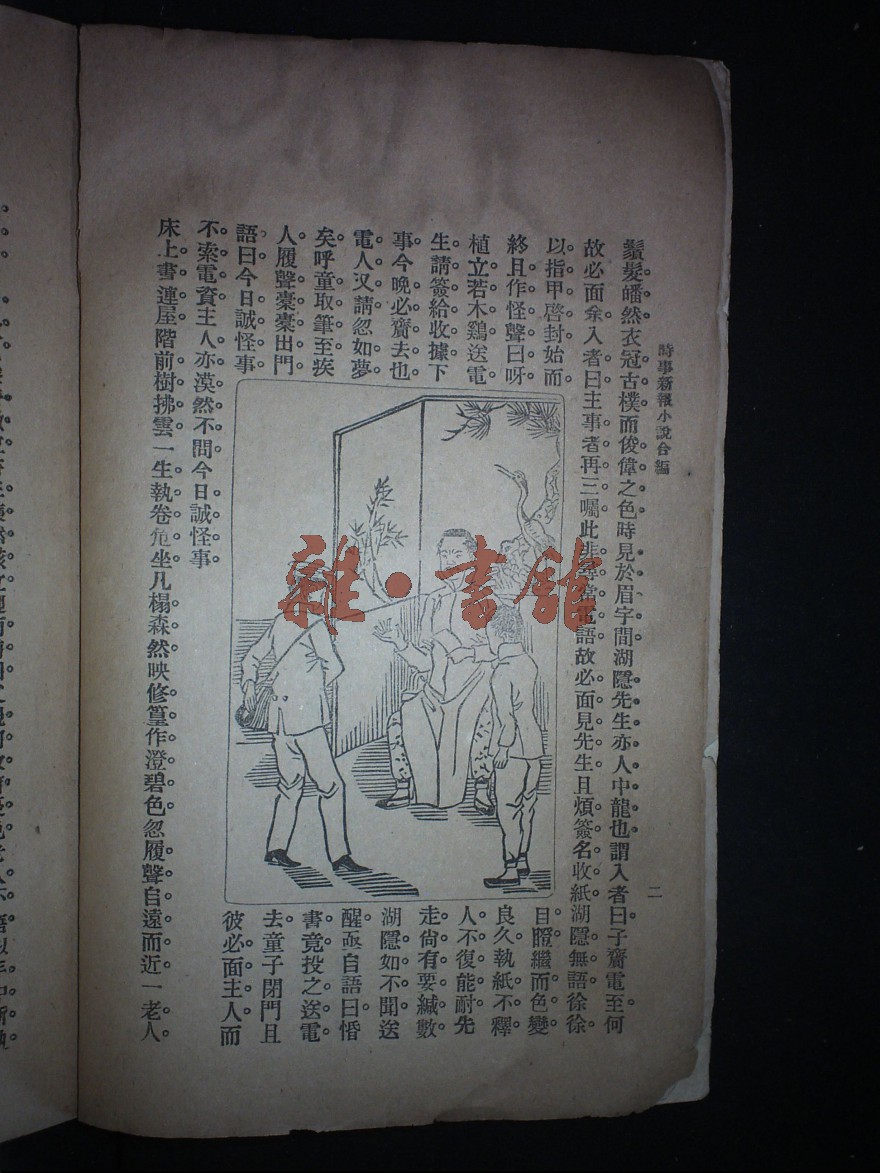 時事新報小說合編
二
鬚髮皤然。衣冠古樸。而俊偉之色。時見於眉宇間。湖隱先生。亦人中龍也。謂入者曰。子齎電至。何
故必面余。入者曰。主事者再三囑。此非尋常電語。故必面見先生。且煩簽名收紙。湖隱無語。徐徐
以指甲啓封。始而
目瞪。繼而色變。
終且作怪聲曰。呀。
良久執紙不釋。
植立若木鷄。送電
人不復能耐。先
生請簽給收據。下
走尙有要緘數
事。今晚必齎去也。
湖隱如不聞。送
電人又請。忽如夢
醒。亟自語曰。惛
矣。呼童取筆至。疾
書竟。投之。送電
人履聲橐橐出門
去。童子閉門且
語曰。今日誠怪事。
彼必面主人。而
不索電資。主人亦漠然不問。今日誠怪事。
床上書連屋。階前樹拂雲。一生執卷危坐。几榻森然。映修篁作澄碧色。忽履聲自遠而近。一老人。
雜·書館